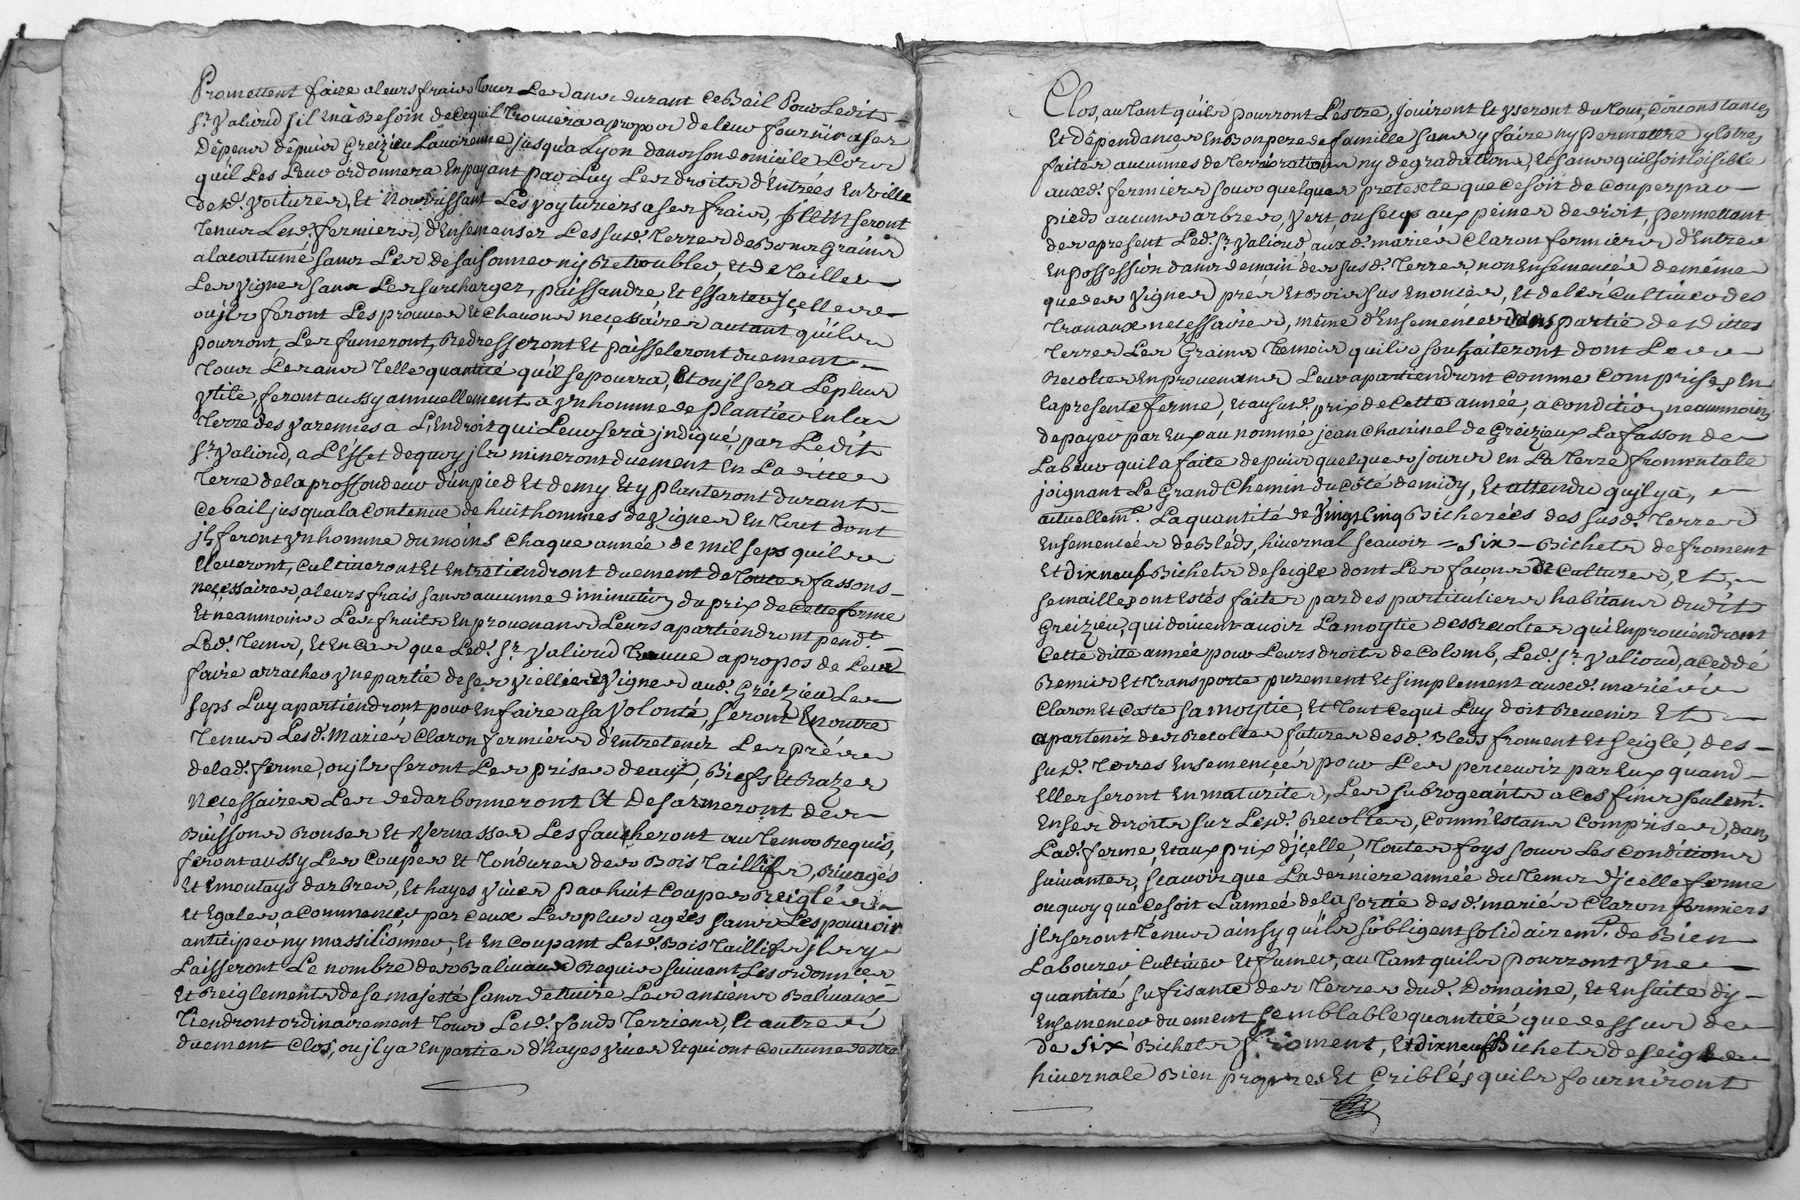 Promettent faire aleurs frais Tous Les ans durant Ce Bail Pour Ledit
Sr. Valioud s'il En à Besoin de Ce quil Trouvera apropos de leur fournir a ses
Dépens dépuis Greizieu Lavarenne jusqu'a Lyon dans son domicile Lors
quil Les Leur ordonnera En payant par Luy Les droits d'Entrées En ville
de sd. voitures, Et Nourrissant Les voyturiers a ses frais, Jls Et seront
Tenus Lesd. fermiers, d'Ensemenser Les susd. Terres de Bons Grains
alacoutumé sans Les désaisonner ny Retroubler, Et de Tailler
Les vignes sans Les surcharger, paissandre, Et Essarter Jcelles
ou jls feront Les provues Et Chavons necessaires autant qu'ils
pourront, Les fumeront, Redresseront Et paisseleront duement
Tous Les ans Telle quantité qu'il se pourra, Et ou jl sera Le plus
vtile, feront aussy annuellement vn homme de plantier En la
Terre des varennes a L'Endroit qui Leur sera jndiqué par Ledit
Sr. Valioud, a L'Effet de quoy jls mineront duement En La ditte
Terre de la proffondeur d'un pied Et demy Et y planteront durant
Ce bail jusqua la Contenue de huit hommes de vignes En Tout dont
jls feront vn homme du moins Chaque année de mil seps quils
Eleveront, Cultiveront Et Entretiendront duement de Toutes fassons
necessaires, a leurs frais sans aucunne diminution du prix de Cette ferme
Et neanmoins Les fruits En provenans Leurs apartiendront pendt.
Led. Tems, Et En Cas que Led. Sr. Valioud Trouve apropos de Leur
faire arracher vne partie de ses vieillies vignes aud. Greizieu Les
seps Luy apartiendront pour En faire a sa volonté, seront En outre
Tenus Lesd. Mariés Claron fermiers d'Entretenir Les prés
de lad. ferme, ou jls feront Les prises deaux, Biefs Et Razes
Necessaires Les dedarbonneront Et Desarmeront des
Buissons Ronses Et Vernasses Les faucheront au Tems Requis,
feront aussy Les Coupes Et Tondures des Bois Taillifs, Rivages
Et Emoutays darbres, Et hayes vives par huit Coupes Reiglées
Et Egales a Commencer par Ceux Les plus agées sans Les pouvoir
anticiper ny massilionner, Et En Coupant Lesd. Bois Taillifs jls y
Laisseront Le nombre des Balivaux Requis suivant Les ordonnces
Et Reiglements de se majesté sans détruire Les anciens Balivaux
Tiendront ordinairement Tous Lesd. fonds Terriens, Et autres
duement Clos, ou jl y a En parties d'hayes vives Et qui ont Coutume destre
Clos, au Tant qu'ils pourront L'estre, Jouiront Et vseront du Tout, Circonstances
Et dépendances En Bon pere de famille sans y faire ny permettre y Estre
faites aucunnes déTerriorations ny degradations, Et sans quil soit loisible
auxd. fermiers sous quelques pretexte que Ce soit de Couper par
pieds aucuns arbres, vert, ou secq aux peines de droit, permettant
des apresent Led. Sr. Valioud auxd. mariés Claron fermiers d'Entrer
En possession dans demain des susd. Terres, non Ensemencées de même
que des Vignes, prés Et Bois sus Enoncés, Et de Les Cultiver des
Travaux necessaires, même d'Ensemencer dans partie desdittes
Terres Les Grains Temois quils souhaiteront dont Les
Recoltes En provenans Leur apartiendront Comme Comprises En
la presente ferme, Et au susd. prix de Cette année, a Condition neanmoins
de payer par Eux au nommé jean Chavinel de Greizieux La fasson de
Labour quil a faite depuis quelques jours En La Terre fromentale
joignant Le Grand Chemin du Côté de midy, Et attendu quil y a,
actuellemt. La quantité de Vingt Cinq Bicherées des susd. Terres
Ensemencées de Bleds, hivernal scavoir = Six = Bichets de froment
Et dix neuf Bichets de seigle dont Les façons de Cultures, Et
semailles ont Estés faites par des partituliers habitans dudit
Greizieu, qui doivent avoir La moytié des Recoltes qui En proviendront
Cette ditte année pour Leurs droits de Colomb, Led. Sr. Valioud, a Ceddé
Remis Et Transporte purement Et simplement auxd. mariés
Claron Et Coste sa moytié, Et Tout Ce qui Luy doit Revenir Et
apartenir des Recoltes futures desd. Bleds froment Et seigle, des
susd. Terres Ensemencées pour Les percevoir par Eux quand
Elles seront En maturites, Les subrogeants a Ces fins seulemt.
En ses droits sur Lesd. Recoltes, Comm'Estans Comprises, dans
Lad. ferme, Et aux prix d'jcelle, Toutes foys sous Les Conditions
suivantes, scavoir que La derniere année du Tems d'jcelle ferme
ou quoy que Ce soit L'année de la sortie desd. mariés Claron fermiers
jls seront Tenus ainsy quils s'obligent solidairemt. de Bien
Labourer Cultiver Et fumer, au Tant quils pourront vne
quantité sufisante des Terres dud. Domaine, Et En suite d'y
Ensemencer duement semblable quantité que dessus de
de Six Bichets froment, Et dix neuf Bichets de seigle
hivernale Bien propres Et Criblés quils fourniront